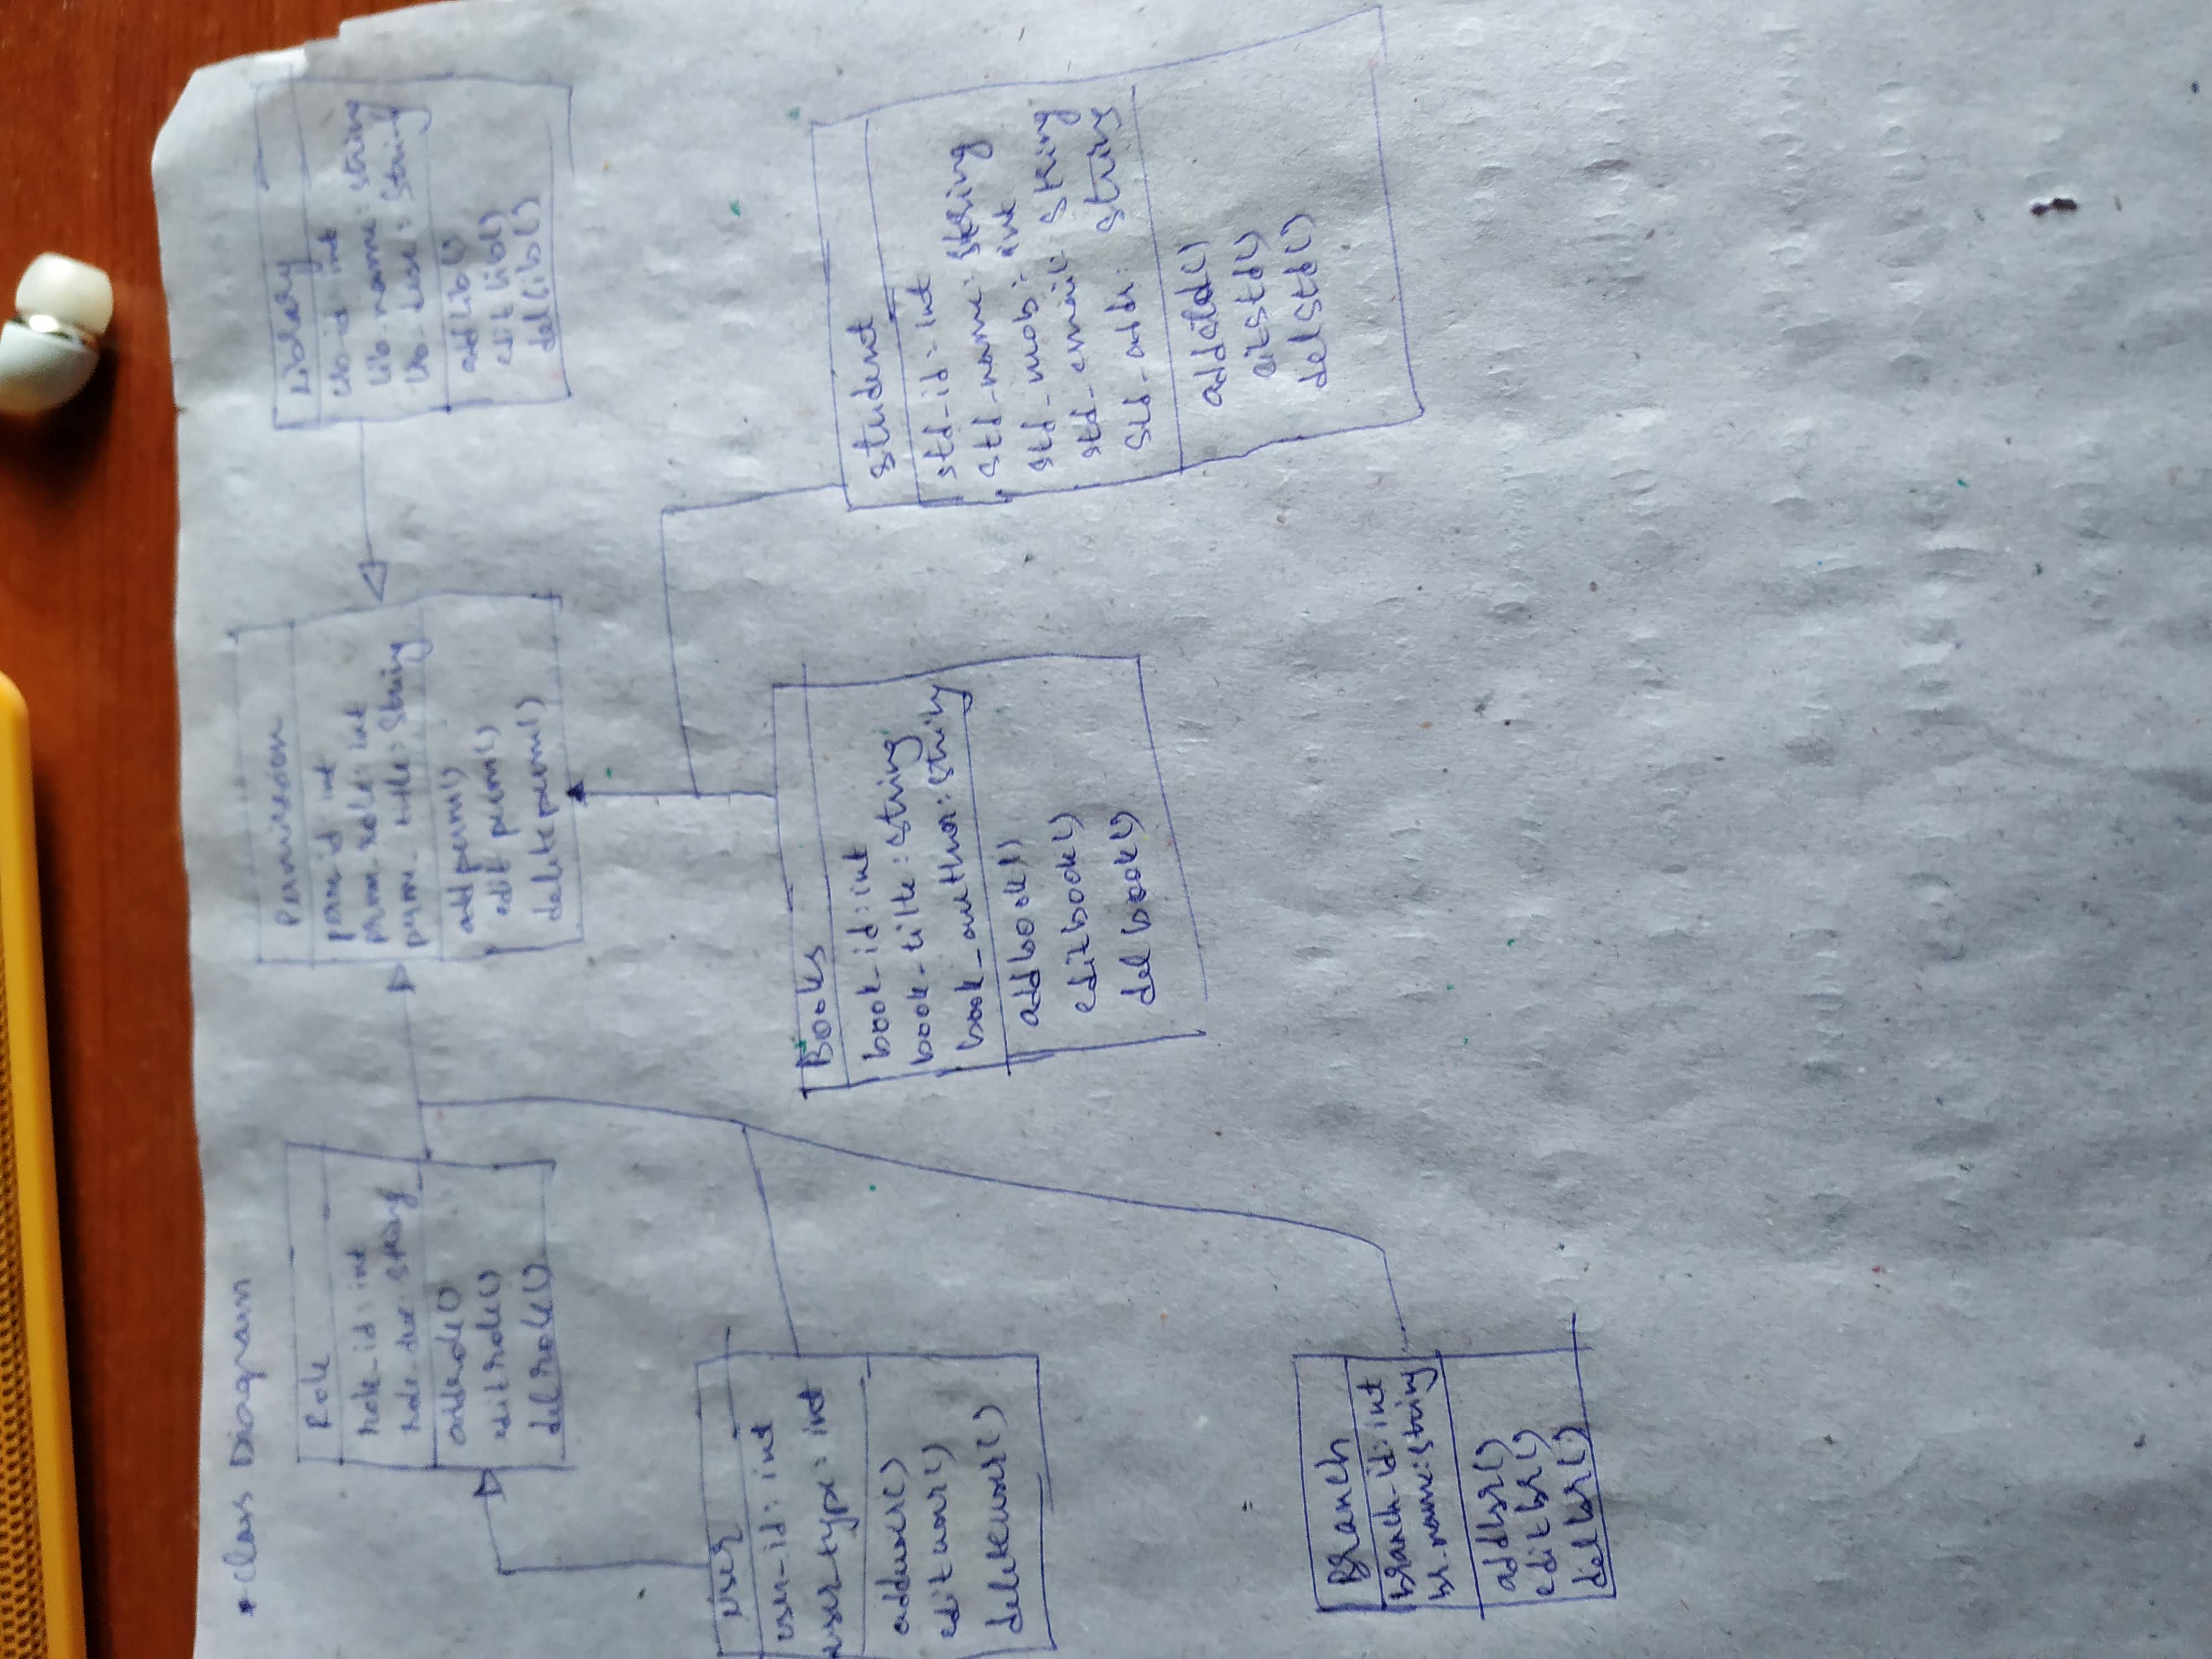 Class Diagram
Role
role_id : int
role_dec : String
addrole()
editrole()
delrole()
Permission
perm_id : int
prem_role : int
perm_title : String
addperm()
edit perm()
deleteperm()
Library
lib_id : int
lib_name : string
lib_desc : String
addlib()
editlib()
dellib()
User
user_id : int
user_type : int
adduser()
edituser()
deleteuser()
Books
book_id : int
book_title : String
book_author : String
addbook()
editbook()
delbook()
Student
std_id : int
std_name : String
std_mob : int
std_email : String
std_addr : String
addstd()
eitstd()
delstd()
Branch
branch_id : int
br_name : String
addbr()
editbr()
delbr()